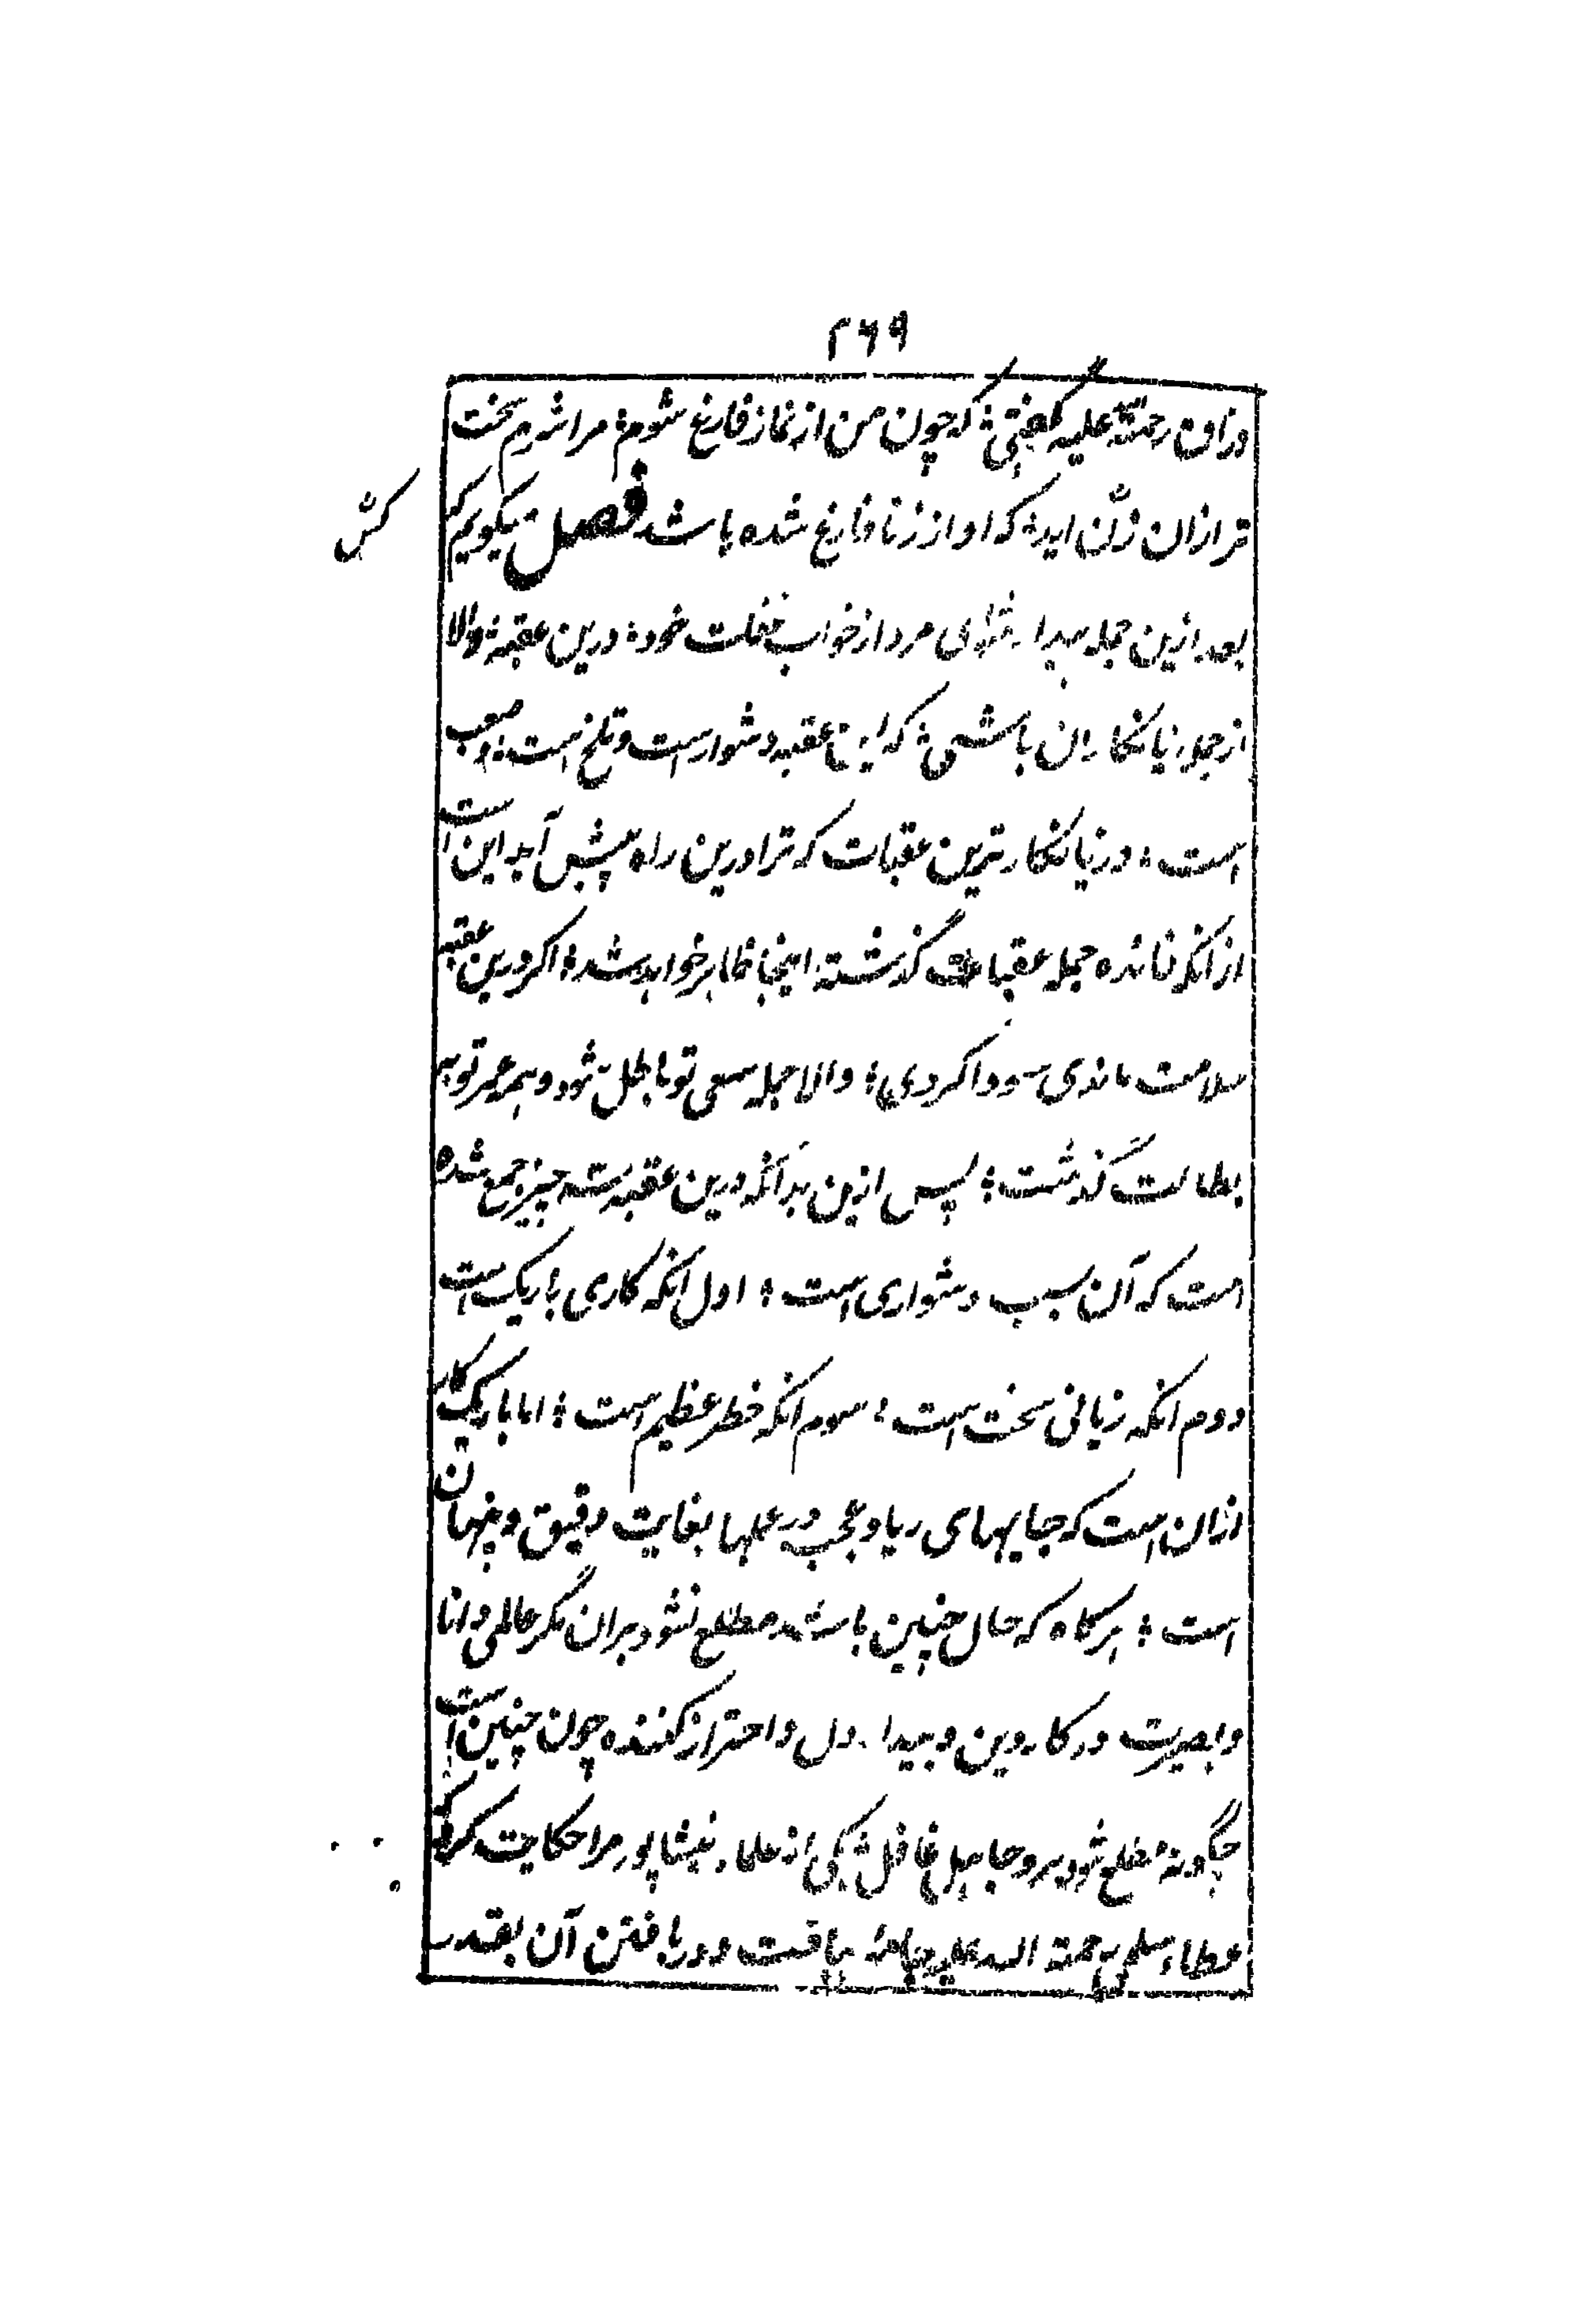 ۲۶۹
وراق رحمة الله علیه گفتی؛ که چون من از نماز فارغ شوم؛ مرا شرم سخت
تر ازان زن اید؛ که او از زنا فارغ شده باشد فصل میگویم که
بعد ازین جمله بیدار شو ای مرد از خواب غفلت خود؛ درین عقبه؛ والا
از جمله زیانکاران باشی؛ که این عقبه دشوار است و تلخ است؛ و صعب
است؛ و زیانکار ترین عقبات که ترا درین راه پیش آید این است
از انکه فائده جمله عقبات گذشته اینجا ظاهر خواهد شد؛ اکر درین عقبه
سلامت ماندی سود اکردی؛ والا جمله سعی تو باطل شود و همه عمر تو به
بطالت گذشت؛ پس ازین بدانکه درین عقبه سه چیز جمع شده
است که آن سبب دشواری است؛ اول انکه کاری باریک است
دوم انکه زیانی سخت است؛ سوم انکه خطر عظیم است؛ اما باریک کار
ازان است که جایهای ریا و عجب در عملها بغایت دقیق و پنهان
است؛ هرکاه که حال چنین باشد مطلع نشود بران مگر عالمی دانا
و ابصیرت در کار دین و بیدار دل و احتراز کننده چون چنین است
چگونه مطلع شود برو جاهل غافل؛ یکی از علماء نیشاپور مرا حکایت کرد که
عطاء سلمی رحمة الله علیه جامهٔ بافت و در بافتن آن بقدر